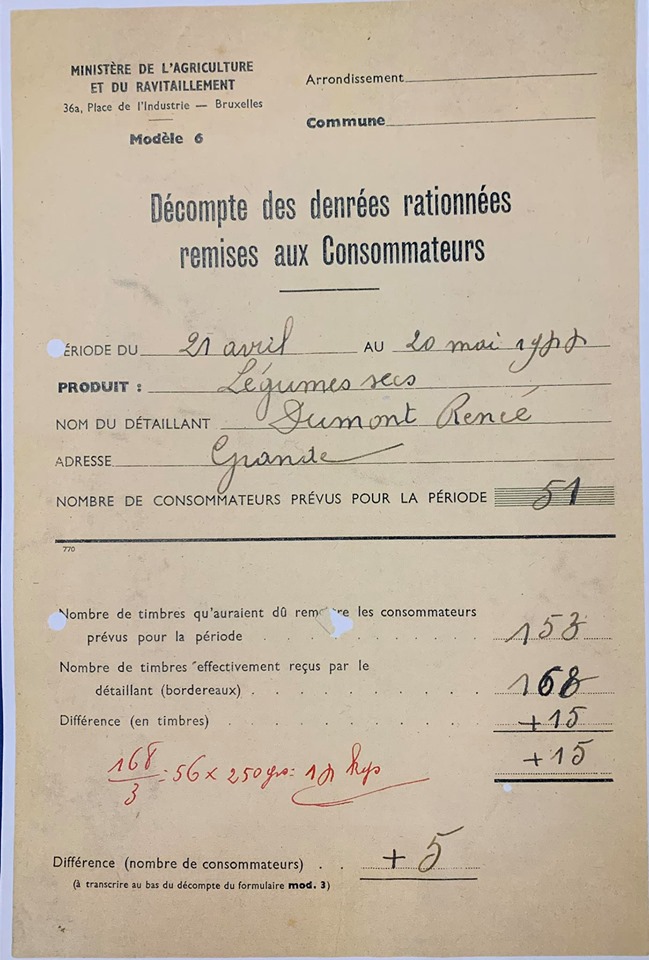 MINISTÈRE DE L'AGRICULTURE
ET DU RAVITAILLEMENT
36a, Place de l'Industrie — Bruxelles
Modèle 6
Arrondissement
Commune
Décompte des denrées rationnées
remises aux Consommateurs
ÉRIODE DU 21 avril AU 20 mai
PRODUIT : Légumes secs
NOM DU DÉTAILLANT Dumont René
ADRESSE Grande
NOMBRE DE CONSOMMATEURS PRÉVUS POUR LA PÉRIODE 51
770
Nombre de timbres qu'auraient dû remettre les consommateurs
prévus pour la période . . . . . . . . 153
Nombre de timbres effectivement reçus par le
détaillant (bordereaux) . . . . . . . . 168
Différence (en timbres) . . . . . . . . + 15
+ 15
168
3 = 56 x 250 grs = 14 kgs
Différence (nombre de consommateurs) . . + 5
(à transcrire au bas du décompte du formulaire mod. 3)